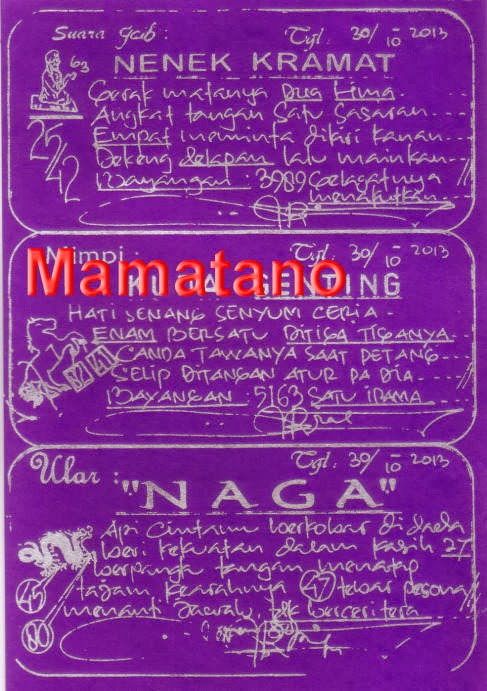 Suara Gaib : Tgl. 30/10 2013
63
NENEK KRAMAT
Gerak matanya Dua Lima
Angkat tangan Satu Sasaran
Empat meminta dikiri kanan
Bekeng delapan lalu mainkan
Bayangan : 3989 Gelagatnya
menakutkan
25/42
Mimpi : Tgl. 30/10 2013
Mamatano
KUDA GENTING
HATI SENANG SENYUM CERIA
ENAM BERSATU DITIGA TIGANYA
CANDA TAWANYA SAAT DETANG
SELIP DITANGAN ATUR PA DIA
BAYANGAN : 5163 SATU IRAMA
Ular : Tgl. 30/10 2013
"NAGA"
Api Cintaim berkobar di dada
beri kekuatan dalam kasih 27
berpangku tangan menatap
tajam, Kearahnya 47 tebar pesona
menanti berceritera
45